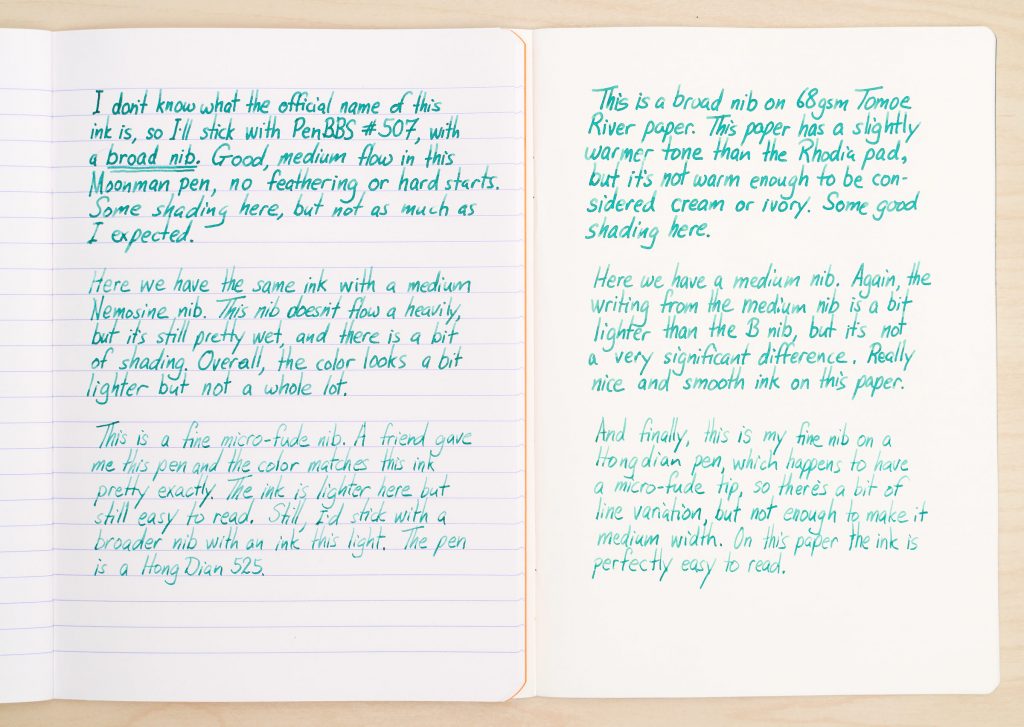 I don't know what the official name of this
ink is, so I'll stick with PenBBS #507, with
a broad nib. Good, medium flow in this
Moonman pen, no feathering or hard starts.
Some shading here, but not as much as
I expected.
Here we have the same ink with a medium
Nemosine nib. This nib doesn't flow a heavily,
but it's still pretty wet, and there is a bit
of shading. Overall, the color looks a bit
lighter but not a whole lot.
This is a fine micro-fude nib. A friend gave
me this pen and the color matches this ink
pretty exactly. The ink is lighter here but
still easy to read. Still, I'd stick with a
broader nib with an ink this light. The pen
is a Hong Dian 525.
This is a broad nib on 68gsm Tomoe
River paper. This paper has a slightly
warmer tone than the Rhodia pad,
but it's not warm enough to be con-
sidered cream or ivory. Some good
shading here.
Here we have a medium nib. Again, the
writing from the medium nib is a bit
lighter than the B nib, but it's not
a very significant difference. Really
nice and smooth ink on this paper.
And finally, this is my fine nib on a
Hongdian pen, which happens to have
a micro-fude tip, so there's a bit of
line variation, but not enough to make it
medium width. On this paper the ink is
perfectly easy to read.